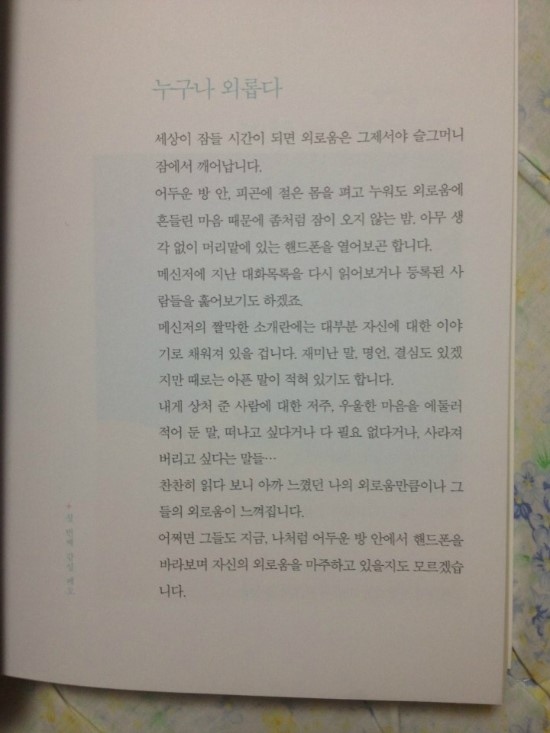 누구나 외롭다
세상이 잠들 시간이 되면 외로움은 그제서야 슬그머니
잠에서 깨어납니다.
어두운 방 안, 피곤에 절은 몸을 펴고 누워도 외로움에
흔들린 마음 때문에 좀처럼 잠이 오지 않는 밤. 아무 생
각 없이 머리맡에 있는 핸드폰을 열어보곤 합니다.
메신저에 지난 대화목록을 다시 읽어보거나 등록된 사
람들을 훑어보기도 하겠죠.
메신저의 짤막한 소개란에는 대부분 자신에 대한 이야
기로 채워져 있을 겁니다. 재미난 말, 명언, 결심도 있겠
지만 때로는 아픈 말이 적혀 있기도 합니다.
내게 상처 준 사람에 대한 저주, 우울한 마음을 에둘러
적어 둔 말, 떠나고 싶다거나 다 필요 없다거나, 사라져
버리고 싶다는 말들…
찬찬히 읽다 보니 아까 느꼈던 나의 외로움만큼이나 그
들의 외로움이 느껴집니다.
어쩌면 그들도 지금, 나처럼 어두운 방 안에서 핸드폰을
바라보며 자신의 외로움을 마주하고 있을지도 모르겠습
니다.